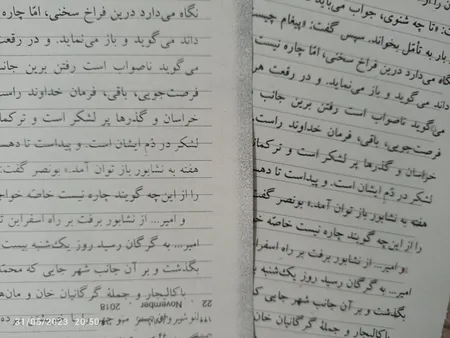 نگاه می‌دارد درین فراخ سخنی، امّا چاره
داند می‌گوید و باز می‌نماید. و در رقعت
می‌گوید ناصواب است رفتن برین جانب
فرصت‌جویی، باقی، فرمان خداوند راست
خراسان و گذرها پر لشکر است و ترکما
لشکر در دُمِ ایشان است. و پیداست تا دهـ
هفته به نشابور باز توان آمد.» بونصر گفت:
را از این‌چه گویند چاره نیست خاصّه خواجـ
و امیر... از نشابور برفت بر راه اسفراین تـ
امیر... به گرگان رسید روز یک‌شنبه بیست
بگذشت و بر آن جانب شهر جایی که محمّـ
باکالیجار و جملهٔ گرگانیان خان و مان‌هـ
22 November 2018
21/05/2023 20:50
«تا چه شنوی، جواب می‌باید
بار به تأمّل بخواند. سپس گفت: «پیغام چیست
نگاه می‌دارد درین فراخ سخنی، امّا چاره نیست
داند می‌گوید و باز می‌نماید. و در رقعت هر
می‌گوید ناصواب است رفتن برین جانب
فرصت‌جویی، باقی، فرمان خداوند راست
خراسان و گذرها پر لشکر است و ترکما
لشکر در دُمِ ایشان است. و پیداست تا دهـ
هفته به نشابور باز توان آمد.» بونصر گفت
را از این‌چه گویند چاره نیست خاصّه خو
و امیر... از نشابور برفت بر راه اسفرا
امیر... به گرگان رسید روز یک‌شنبه بـ
بگذشت و بر آن جانب شهر جایی که
باکالیجار و جملهٔ گرگانیان خان